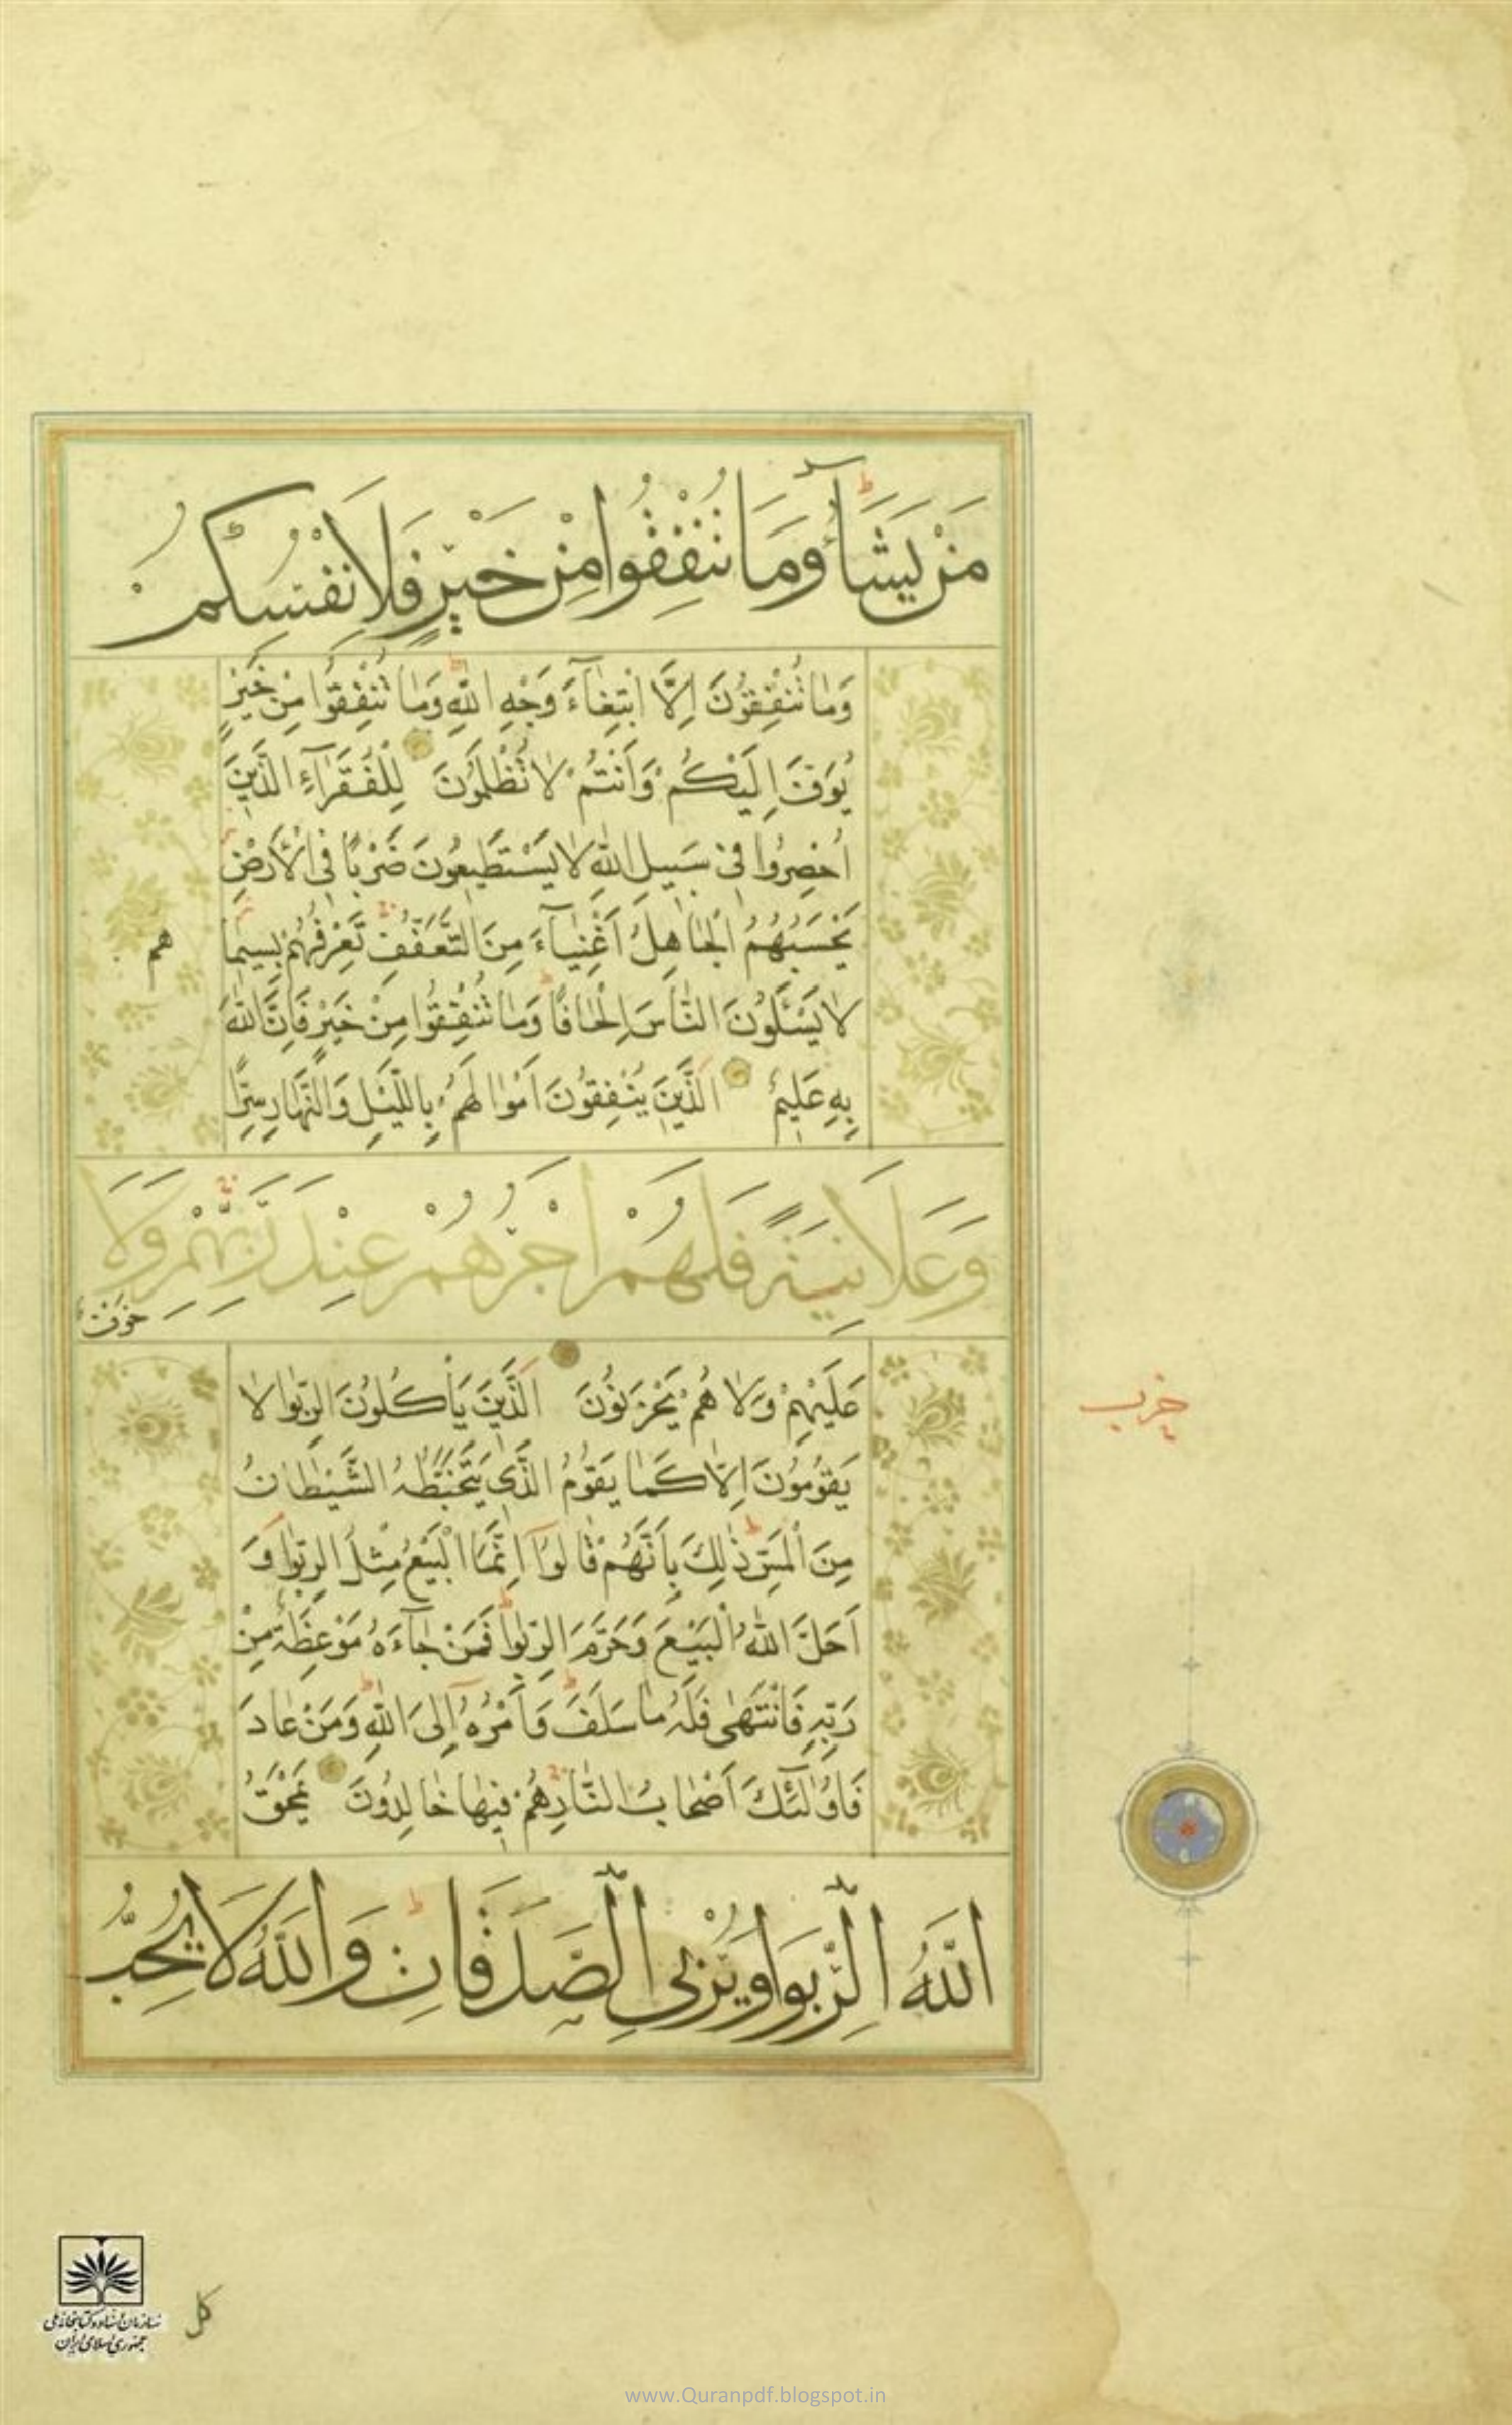 مَنْ يَشَآءُ وَمَا تُنْفِقُوا مِنْ خَيْرٍ فَلِاَنْفُسِكُمْ
وَمٰا تُنْفِقُونَ اِلَّا ابْتِغٰٓاءَ وَجْهِ اللّٰهِ وَمٰا تُنْفِقُوا مِنْ خَيْرٍ
يُوَفَّ اِلَيْكُمْ وَاَنْتُمْ لاٰ تُظْلَمُونَ لِلْفُقَرٰٓاءِ الَّذِينَ
اُحْصِرُوا فِى سَبِيلِ اللّٰهِ لاٰ يَسْتَطِيعُونَ ضَرْبًا فِى الْاَرْضِ
يَحْسَبُهُمُ الْجٰاهِلُ اَغْنِيٰٓاءَ مِنَ التَّعَفُّفِ تَعْرِفُهُمْ بِسِيمٰا
هم
لاٰ يَسْئَلُونَ النّٰاسَ اِلْحٰافًا وَمٰا تُنْفِقُوا مِنْ خَيْرٍ فَاِنَّ اللّٰهَ
بِهِ عَلِيمٌ الَّذِينَ يُنْفِقُونَ اَمْوٰالَهُمْ بِاللَّيْلِ وَالنَّهٰارِ سِرًّا
وَعَلاَنِيَةً فَلَهُمْ اَجْرُهُمْ عِنْدَ رَبِّهِمْ وَلَا
خَوْفٌ
عَلَيْهِمْ وَلاٰ هُمْ يَحْزَنُونَ الَّذِينَ يَأْكُلُونَ الرِّبٰوا لاٰ
يَقُومُونَ اِلاّٰ كَمٰا يَقُومُ الَّذِى يَتَخَبَّطُهُ الشَّيْطٰانُ
مِنَ الْمَسِّ ذٰلِكَ بِاَنَّهُمْ قٰالُوٓا اِنَّمَا الْبَيْعُ مِثْلُ الرِّبٰوا وَ
اَحَلَّ اللّٰهُ الْبَيْعَ وَحَرَّمَ الرِّبٰوا فَمَنْ جٰٓاءَهُ مَوْعِظَةٌ مِنْ
رَبِّهِ فَانْتَهٰى فَلَهُ مٰا سَلَفَ وَاَمْرُهُ اِلَى اللّٰهِ وَمَنْ عٰادَ
فَاُولٰٓئِكَ اَصْحٰابُ النّٰارِ هُمْ فِيهٰا خٰالِدُونَ يَمْحَقُ
حزب
اللّٰهُ الرِّبَوا وَيُرْبِى الصَّدَقَاتِ وَاللّٰهُ لَا يُحِبُّ
كل
سازمان اسناد و کتابخانه ملی
جمهوری اسلامی ایران
www.Quranpdf.blogspot.in